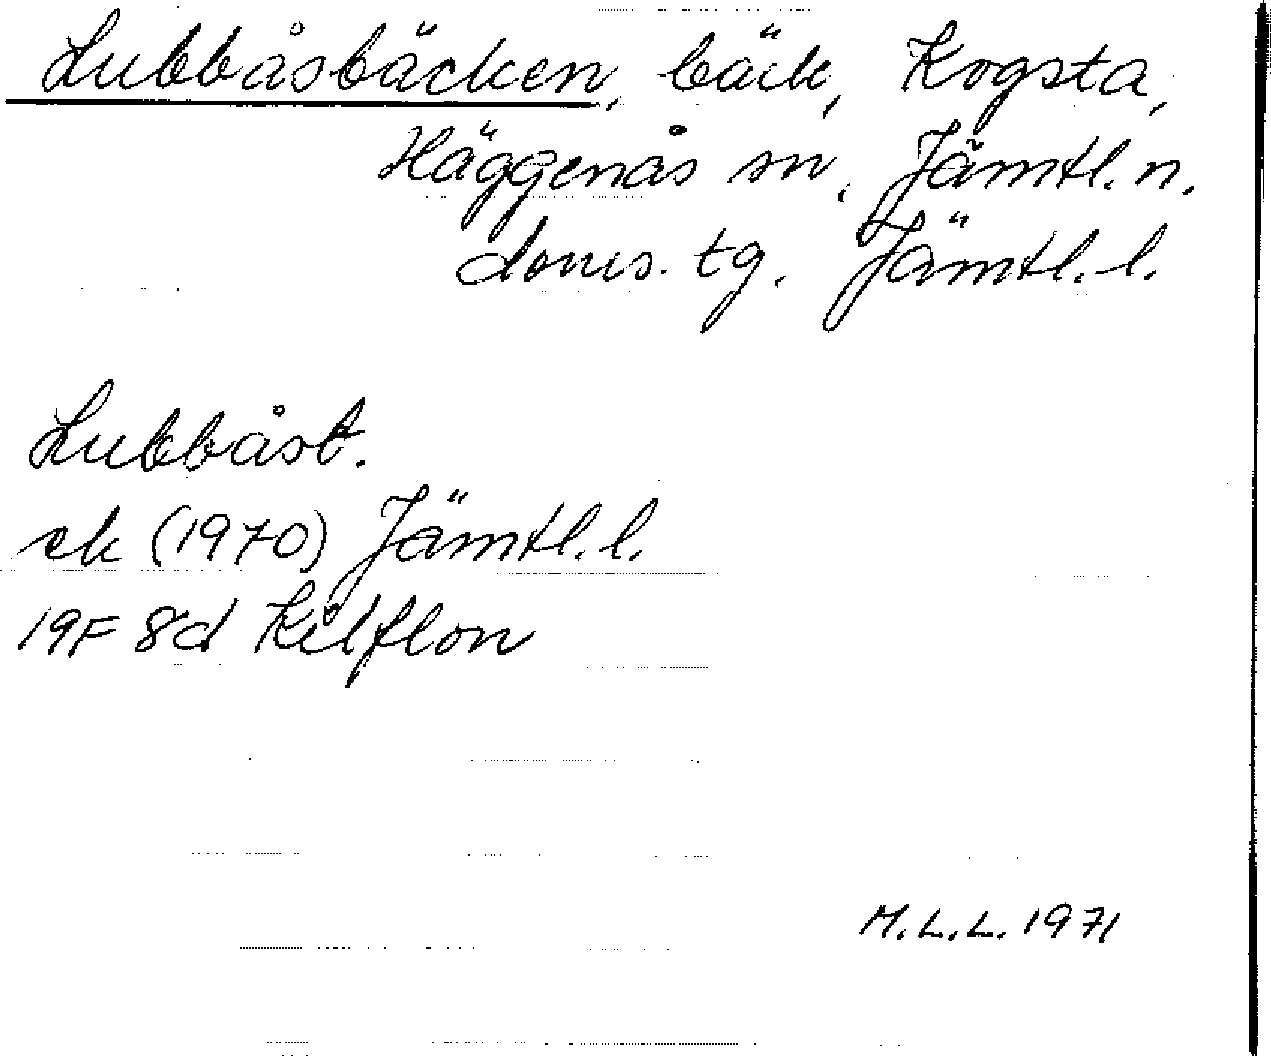 Lubbåsbäcken, bäck, Kogsta,
Häggenås sn, Jämtl. n.
doms. tg. Jämtl. l.
Lubbåsb.
ek (1970) Jämtl. l.
19F 8d Kilflon
M.L.L. 1971